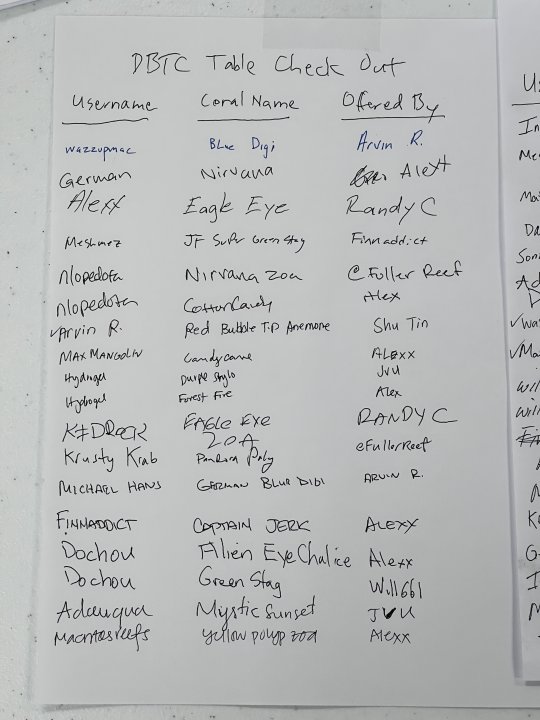 DBTC Table Check Out
Username Coral Name Offered By
wazzupmac Blue Digi Arvin R.
German Nirvana Alexx
Alexx Eagle Eye Randy C
Meshmez JF Super Green Stag Finnaddict
nlopedofa Nirvana zoa @FullerReef
nlopedofa Cotton Candy Alex
✓Arvin R. Red Bubble Tip Anemone Shu Tin
MAX MANGOLIV Candy cane ALEXX
Hydrogel Purple Stylo JVU
Hydrogel Forest Fire Alex
K#DROCK EAGLE EYE RANDY C
ZOA
Krusty Krab Pandora Paly eFullerReef
MICHAEL HANS GERMAN BLUE DIGI ARVIN R.
FINNADDICT CAPTAIN JERK ALEXX
Dochou Alien Eye Chalice Alexx
Dochou Green Stag Will661
Adauqua Mystic Sunset JVU
Macntosreefs yellow polyp zoa Alexx